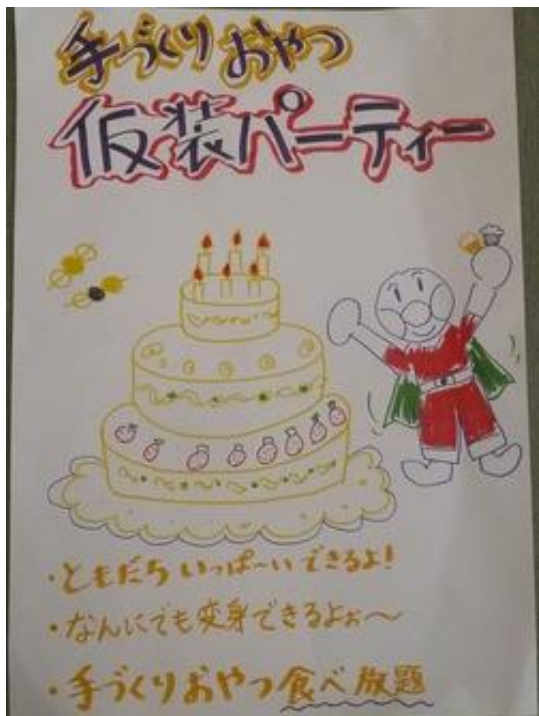 手づくりおやつ
仮装パーティー
・ともだちいっぱ〜いできるよ!
・なんにでも変身できるよぉ〜
・手づくりおやつ食べ放題